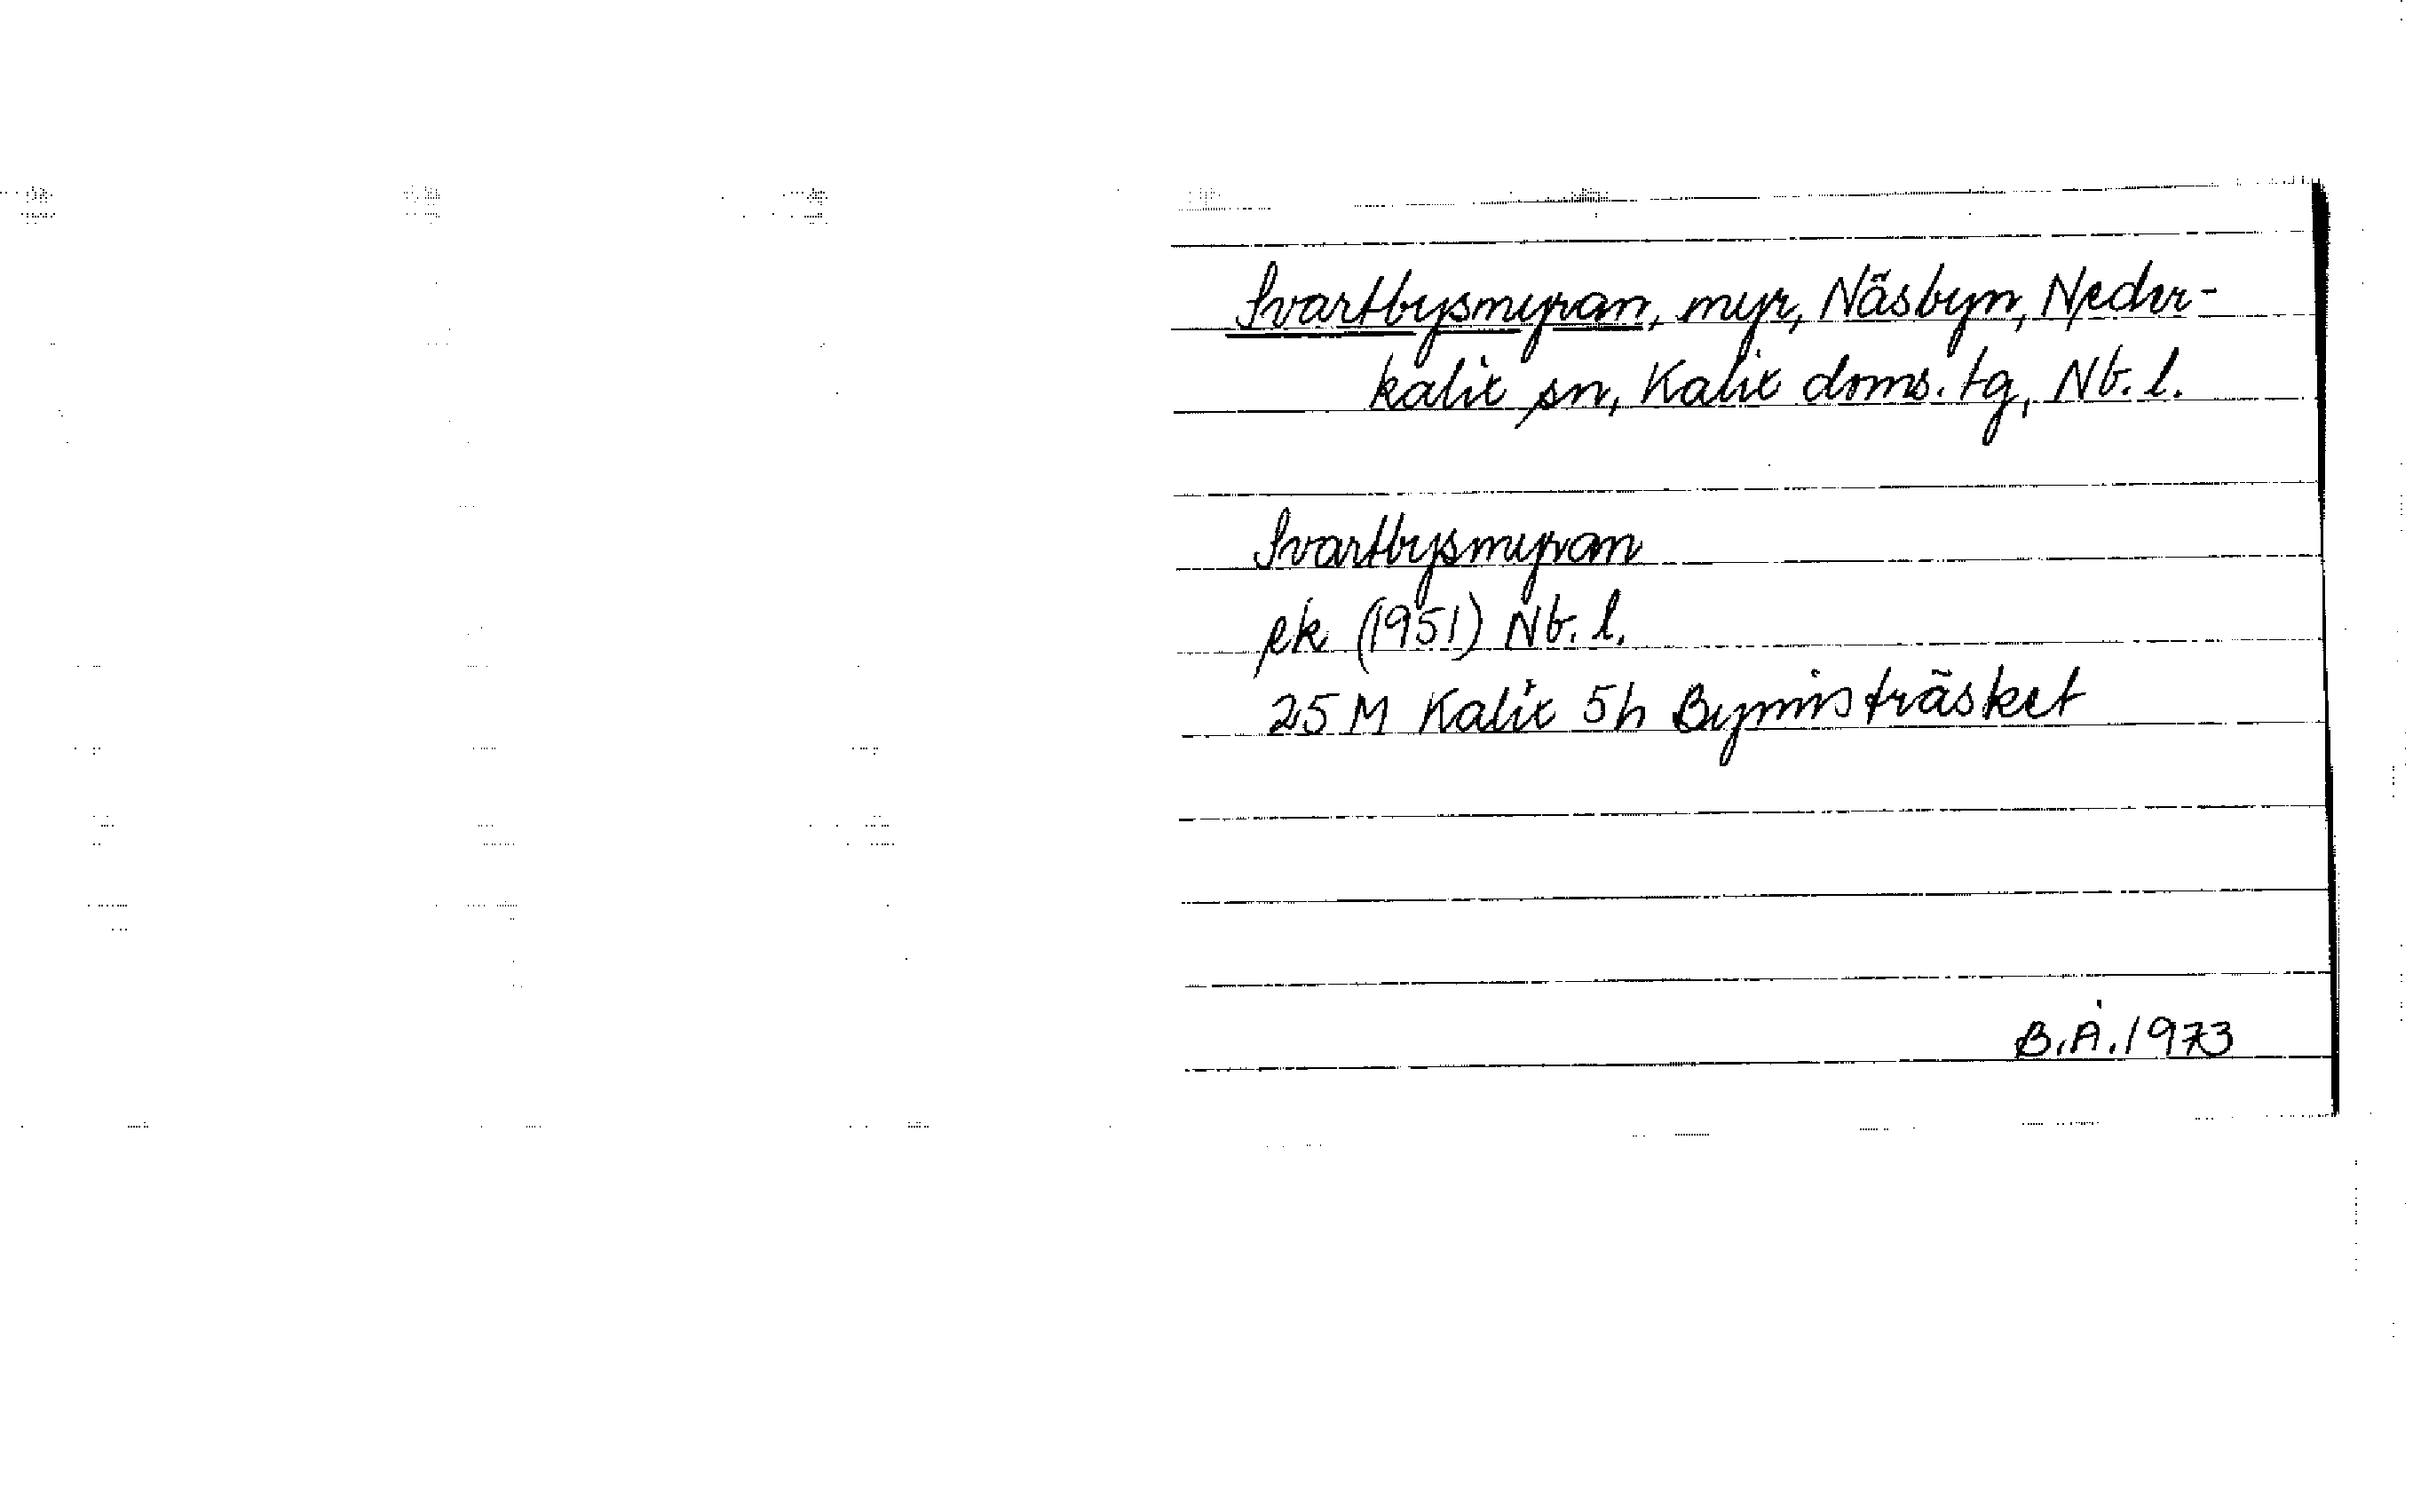 Svartbysmyran, myr, Näsbyn, Neder-
kalix sn, Kalix doms. tg, Nb. l.
Svartbysmyran
ek (1951) Nb. l.
25 M Kalix 5h Byministräsket
B.Å. 1973